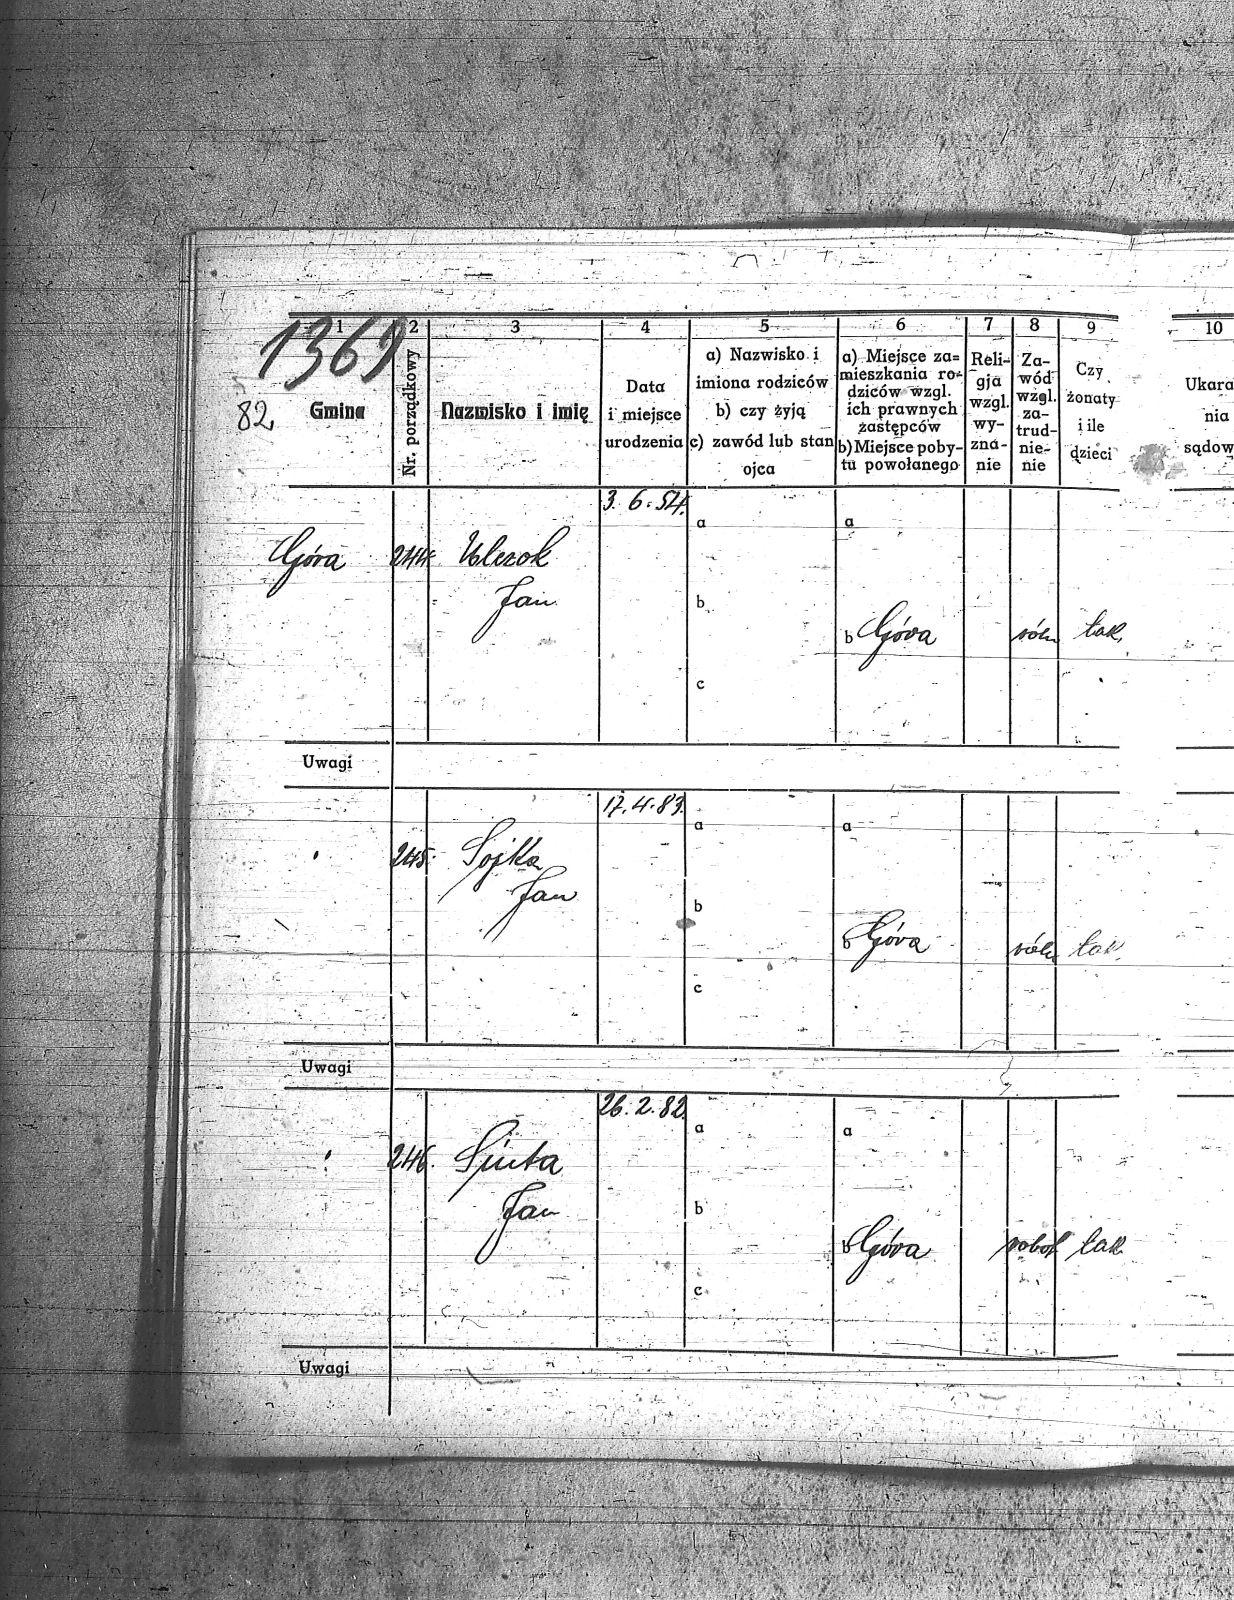 1369
82
1 2 3 4 5 6 7 8 9 10
Gmina
Nr. porządkowy
Nazwisko i imię
Data
i miejsce
urodzenia
a) Nazwisko i
imiona rodziców
b) czy żyją
c) zawód lub stan
ojca
a) Miejsce za=
mieszkania ro-
dziców wzgl.
ich prawnych
zastępców
b) Miejsce poby-
tu powołanego
Reli-
gja
wzgl.
wy-
zna-
nie
Za-
wód
wzgl.
za-
trud-
nie-
nie
Czy
żonaty
i ile
dzieci
Ukara
nia
sądow
3. 6. 54.
a a
Góra 244. Ulczok
Jan
b
b Góra róln tak.
c
Uwagi
17. 4. 83.
a a
245. Sojka
Jan
b
b Góra róln tak.
c
Uwagi
26. 2. 82.
a a
246. Siuta
Jan
b
b Góra robot tak
c
Uwagi